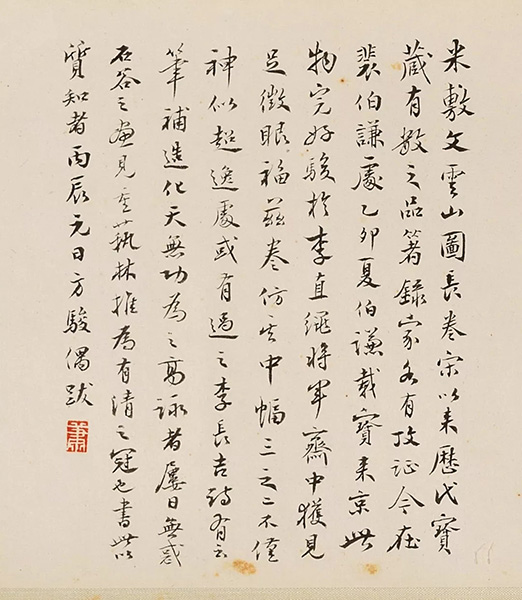 米敷文雲山圖長卷宋以來歷代寶
藏有數之品著錄家各有攷证今在
裴伯謙處乙卯夏伯謙載寶来京此
物完好駿於李直繩將軍齋中獲見
足徵眼福茲卷仿其中幅三之二不僅
神似超逸處或有過之李長吉詩有云
筆補造化天無功為之高詠者屢日無惑
石谷之畫見重藝林推為有清之冠也書此以
質知者丙辰元日方駿偶跋